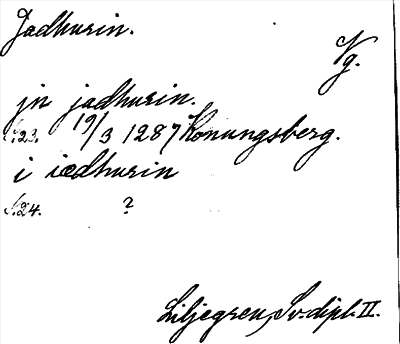 Jadhurin.
Vg.
jn jadhurin.
S.23. 19/3 1287 Konungsberg.
i iædhurin
S.24. ?
Liljegren, Sv. dipl. II.